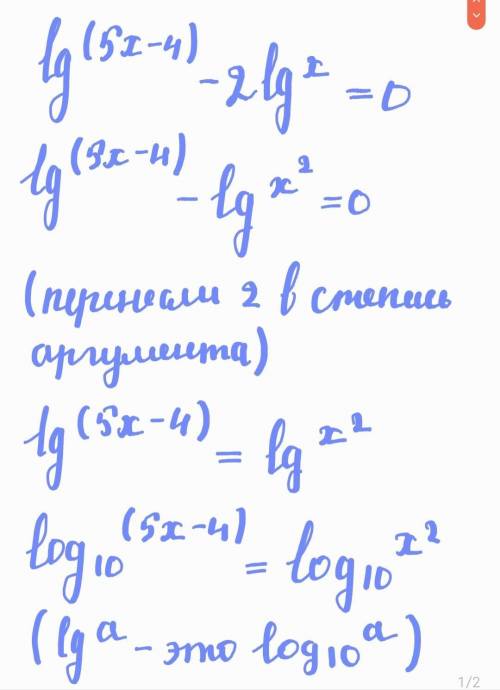 lg^(5x-4) - 2lg^x = 0
lg^(5x-4) - lg^x² = 0
(перенесли 2 в степень
аргумента)
lg^(5x-4) = lg^x²
log₁₀^(5x-4) = log₁₀^x²
(lg^a - это log₁₀^a)
1/2